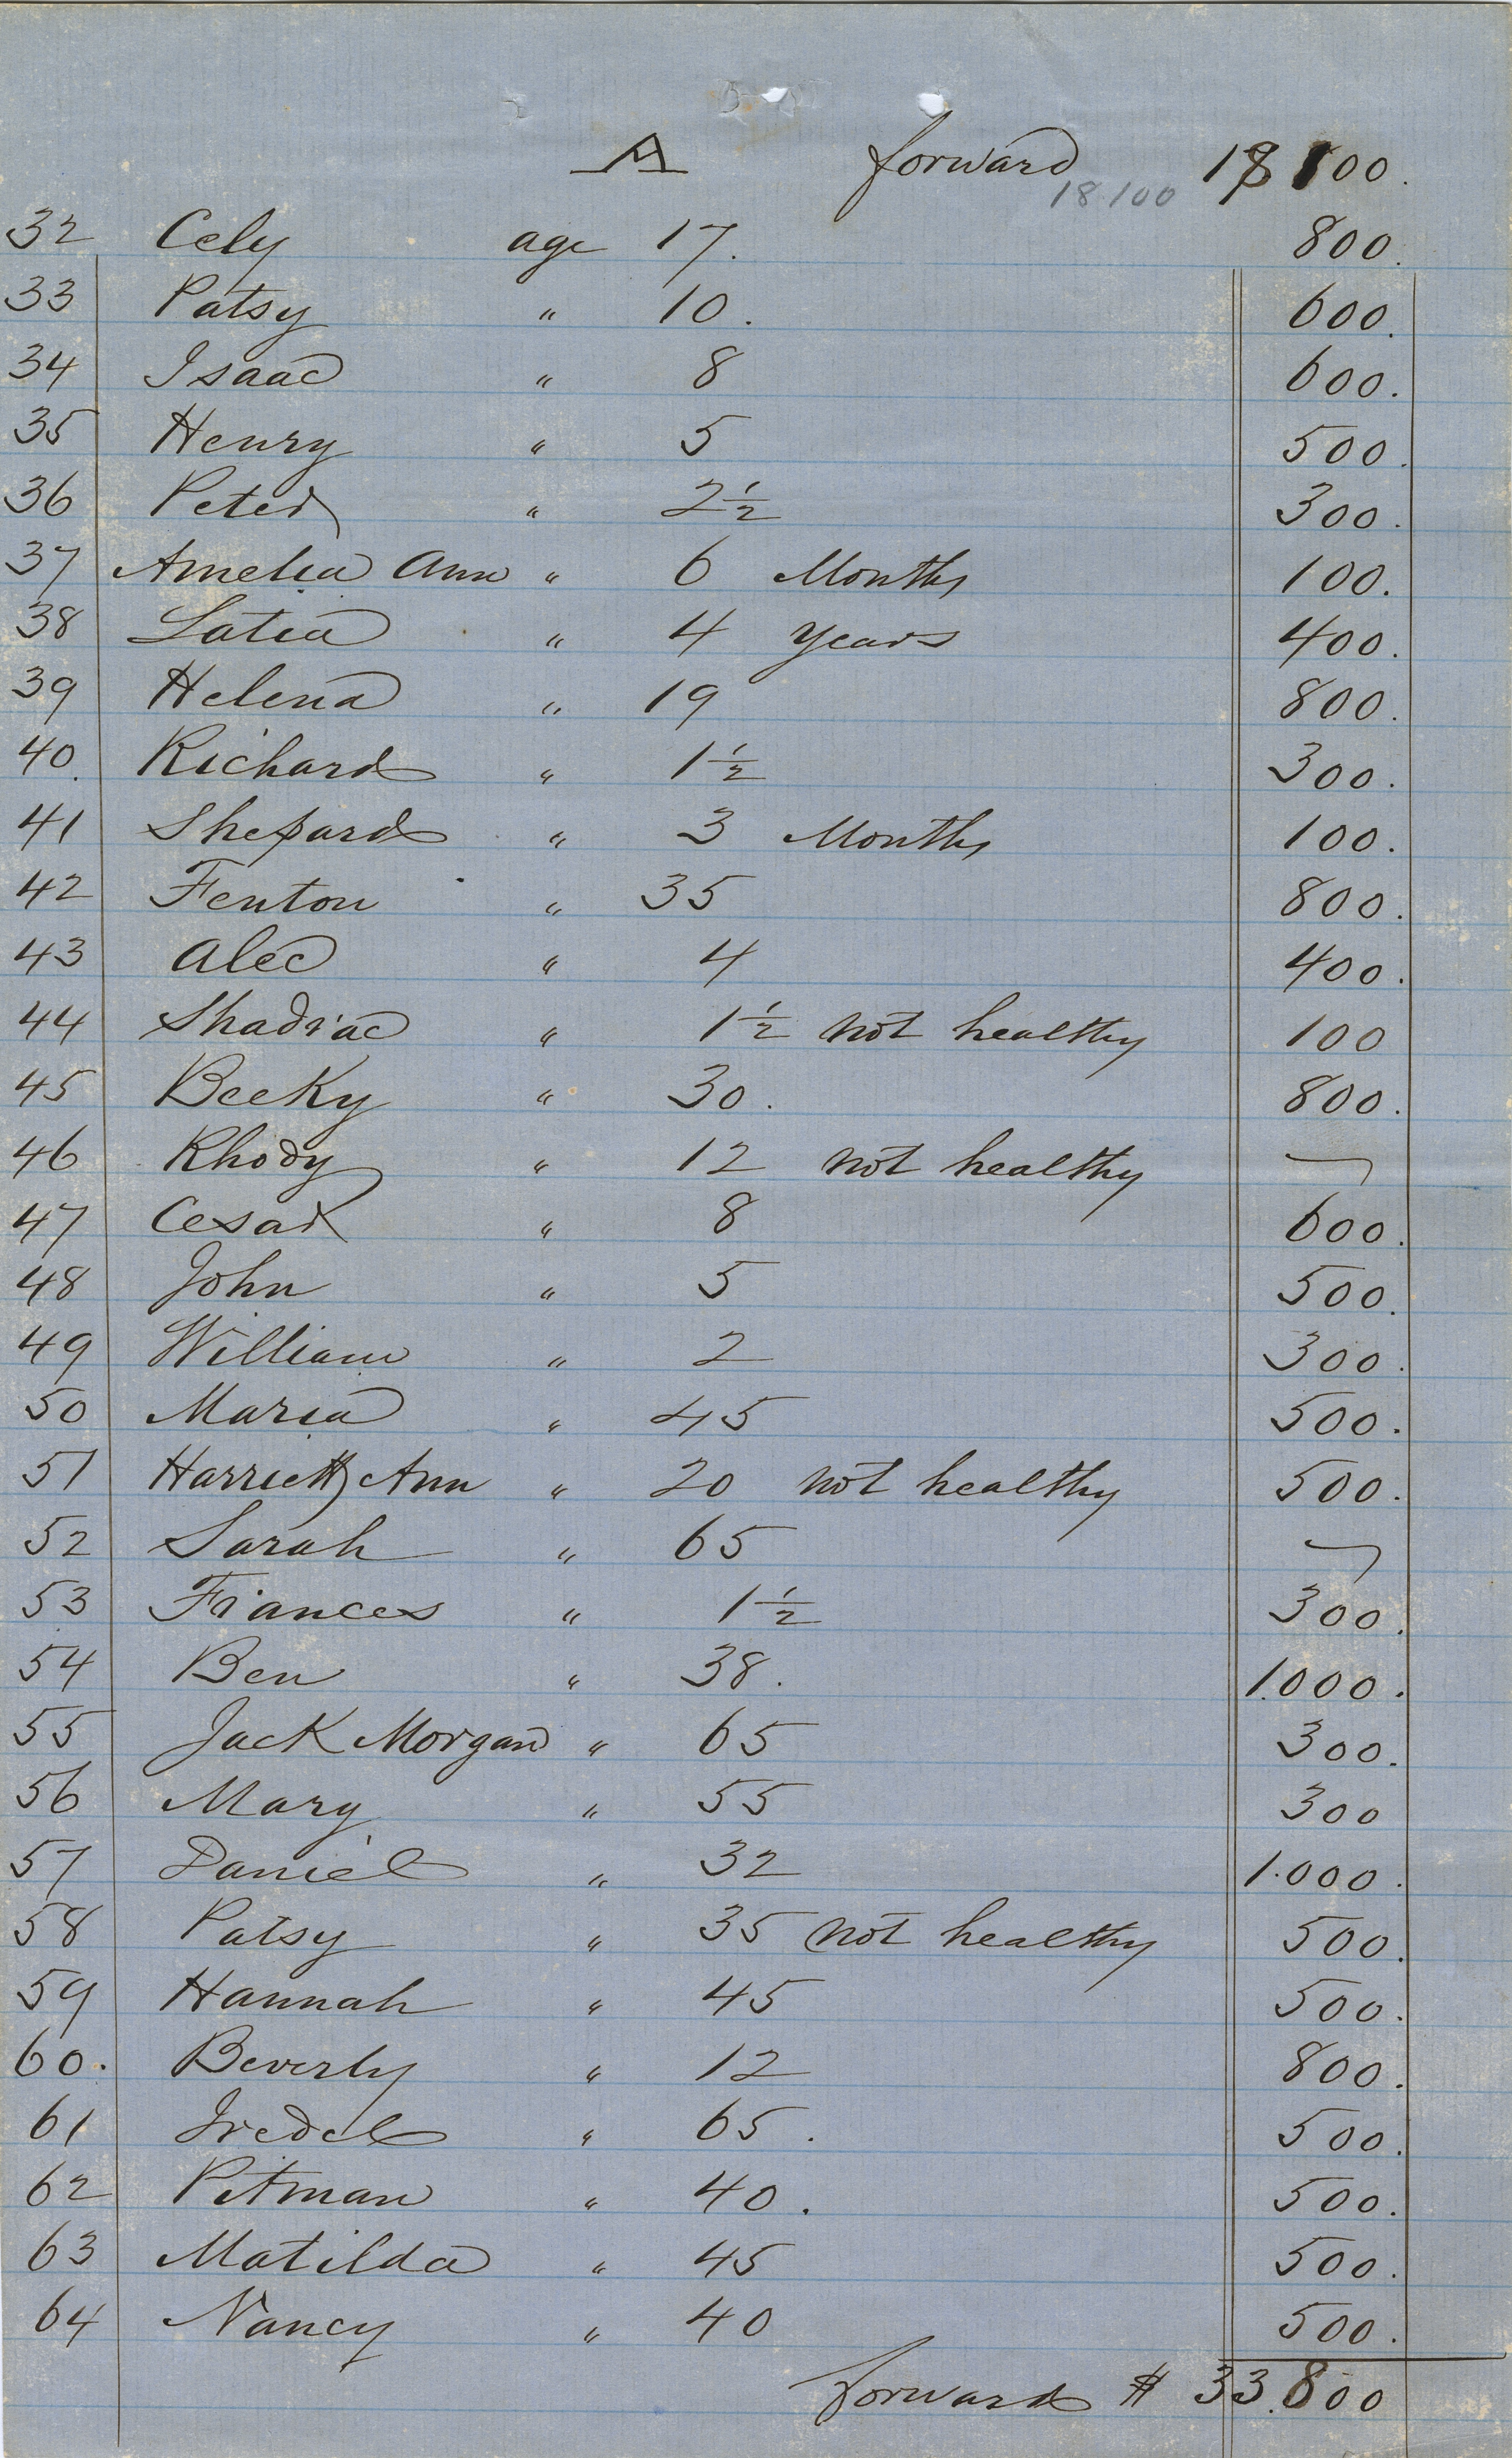 A forward 18 100.
18.100
32 Cely age 17. 800.
33 Patsy " 10. 600.
34 Isaac " 8 600.
35 Henry " 5 500.
36 Peter " 2½ 300.
37 Amelia Ann " 6 Months 100.
38 Latia " 4 years 400.
39 Helena " 19 800.
40. Richard " 1½ 300.
41 Shepard " 3 Months 100.
42 Fenton " 35 800.
43 Alec " 4 400.
44 Shadrac " 1½ not healthy 100
45 Becky " 30. 800.
46 Rhody " 12 not healthy —
47 Cesar " 8 600.
48 John " 5 500.
49 William " 2 300.
50 Maria " 45 500.
51 Harriett Ann " 20 not healthy 500.
52 Sarah " 65 —
53 Frances " 1½ 300.
54 Ben " 38. 1.000.
55 Jack Morgan " 65 300.
56 Mary " 55 300
57 Daniel " 32 1.000.
58 Patsy " 35 not healthy 500.
59 Hannah " 45 500.
60. Beverly " 12 800.
61 Iredel " 65. 500.
62 Pitman " 40. 500.
63 Matilda " 45 500.
64 Nancy " 40 500.
forward $ 33.800